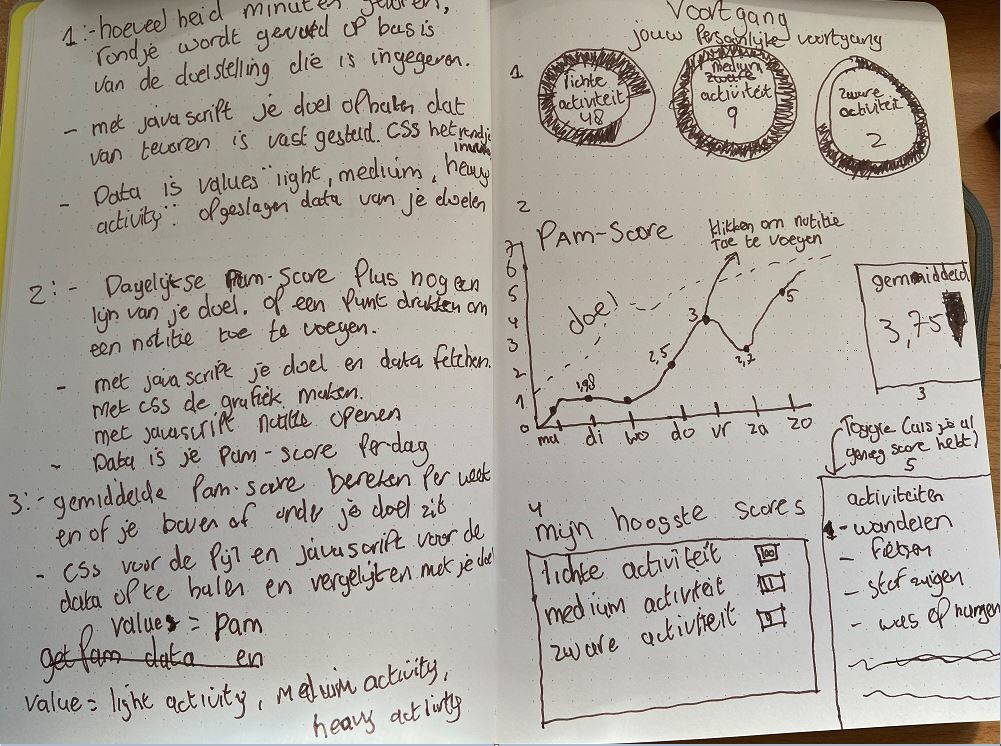 1:-hoeveel heid minuten
rondje wordt gevuld op basis
van de doelstelling die is ingegeven.
- met javascript je doel ophalen dat
van tevoren is vast gesteld. CSS het rondje
- Data is values "light, medium, heavy
activity": opgeslagen data van je doelen
2:- Dagelijkse Pam-score Plus nog een
lijn van je doel. op een Punt drukken om
een notitie toe te voegen.
- met javascript je doel en data fetchen.
Met css de grafiek maken.
met javascript notitie openen
- Data is je Pam-score Per dag
3:- gemiddelde Pam-score bereken Per week
en of je boven of onder je doel zit
- CSS voor de Pijl en javascript voor de
data op te halen en vergelijken met je doel
values = Pam
get Pam data en
value = light activity, Medium activity,
heavy activity
Voortgang
jouw Persoonlijke voortgang
1
lichte
activiteit
48
medium
zware
activiteit
9
zware
activiteit
2
2
PAM-Score
klikken om notitie
toe te voegen
7
6
5
4
3
2
1
0
doel
1,98
2,5
3
2,2
5
ma di wo do vr za zo
gemiddeld
3,75
3
Toggle (als je al
genoeg score hebt)
5
activiteiten
- wandelen
- fietsen
- stofzuigen
- was ophangen
4
mijn hoogste scores
lichte activiteit 100
medium activiteit 11
zware activiteit 9